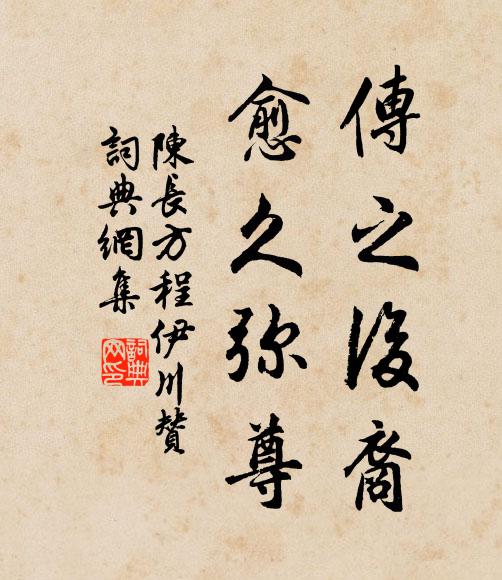 傳之後裔
愈久弥尊
陳長方程伊川贊
詞典網集
詞典
网印